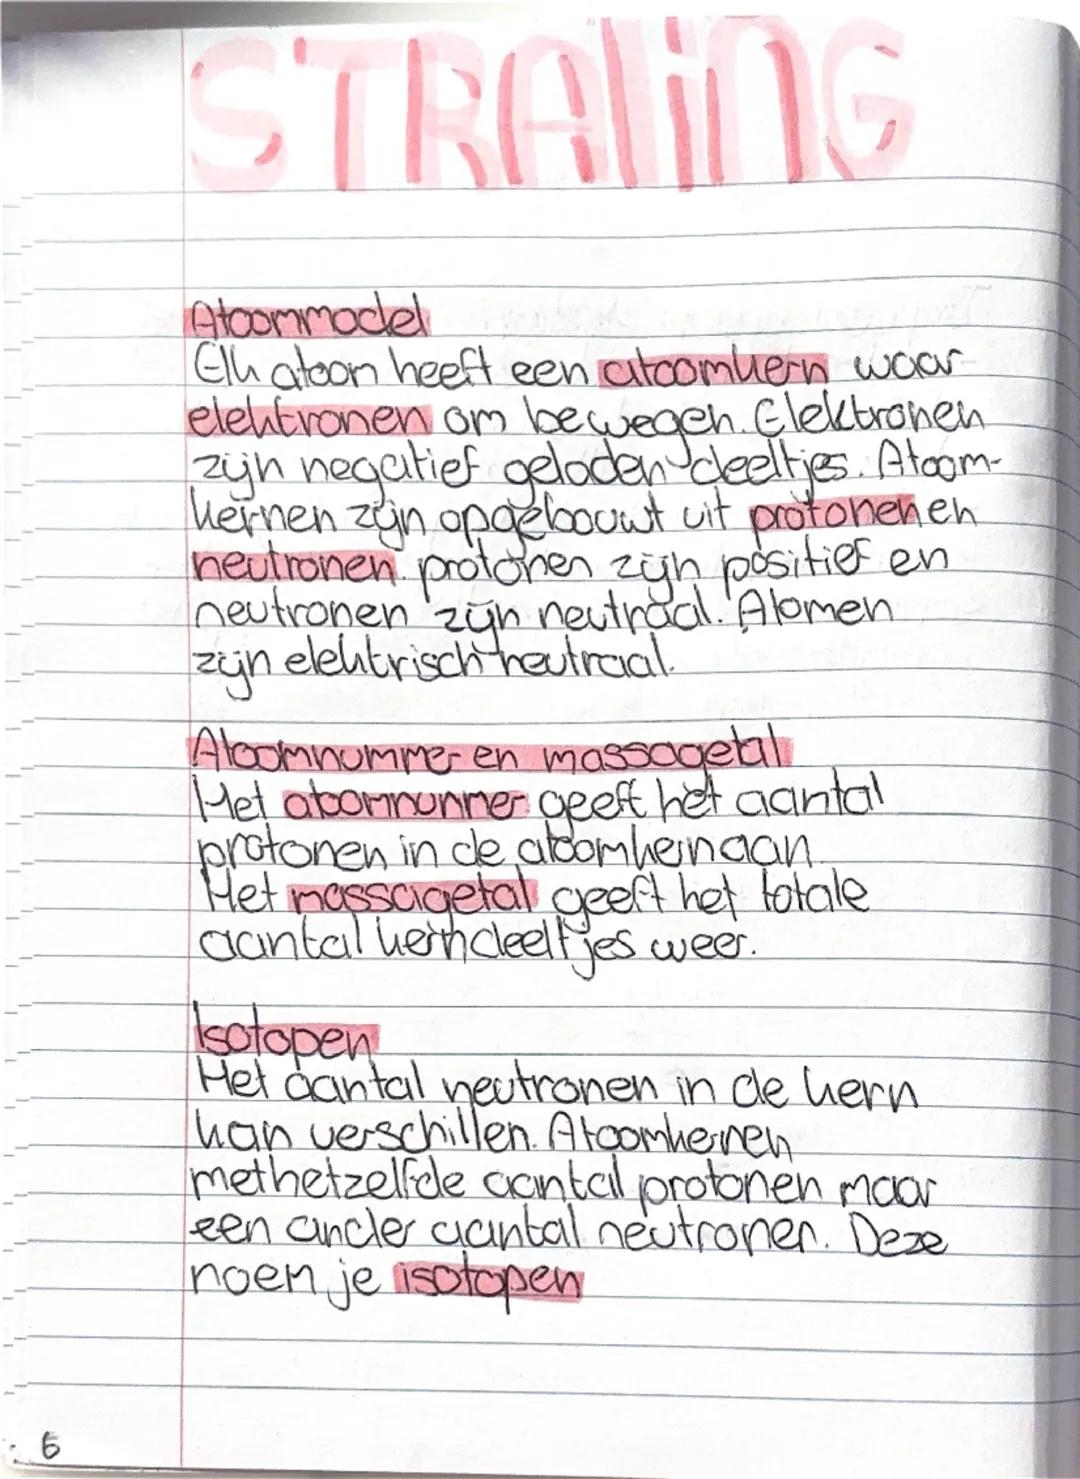 STRALiNG
Atoommodel
Elk atoom heeft een atoomkern waar
elektronen om bewegen. Elektronen
zijn negatief geladen deeltjes. Atoom-
kernen zijn opgebouwt uit protonen en
neutronen. protonen zijn positief en
neutronen zijn neutraal. Atomen
zijn elektrisch neutraal.
Atoomnummer en massagetal
Het atoomnummer geeft het aantal
protonen in de atoomkern aan.
Het massagetal geeft het totale
aantal kerndeeltjes weer.
Isotopen
Het aantal neutronen in de kern
kan verschillen. Atoomkernen
met hetzelfde aantal protonen maar
een ander aantal neutronen. Deze
noem je isotopen
6